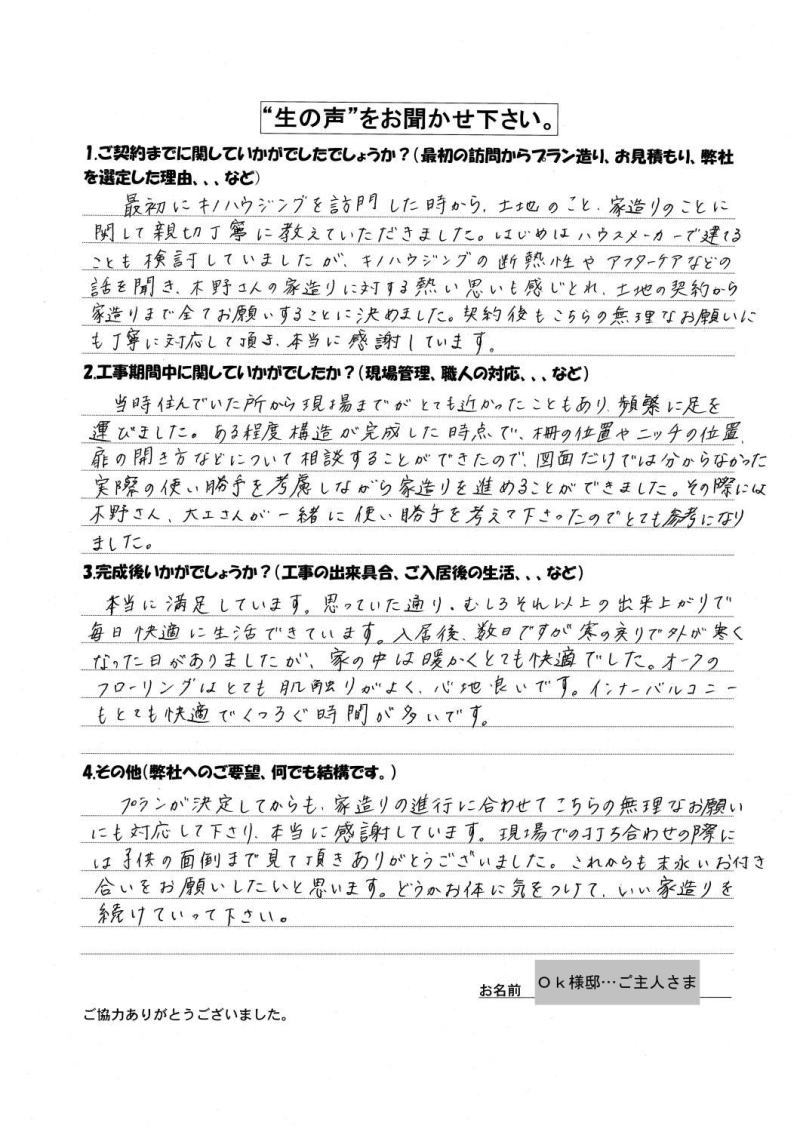 “生の声”をお聞かせ下さい。
1.ご契約までに関していかがでしたでしょうか？（最初の訪問からプラン造り、お見積もり、弊社
を選定した理由、、、など）
最初にキノハウジングを訪問した時から、土地のこと、家造りのことに
関して親切丁寧に教えていただきました。はじめはハウスメーカーで建てる
ことも検討していましたが、キノハウジングの断熱性やアフターケアなどの
話を聞き、木野さんの家造りに対する熱い思いも感じとれ、土地の契約から
家造りまで全てお願いすることに決めました。契約後もこちらの無理なお願いに
も丁寧に対応して頂き、本当に感謝しています。
2.工事期間中に関していかがでしたか？（現場管理、職人の対応、、、など）
当時住んでいた所から現場までがとても近かったこともあり、頻繁に足を
運びました。ある程度構造が完成した時点で、棚の位置やニッチの位置、
扉の開き方などについて相談することができたので、図面だけでは分からなかった
実際の使い勝手を考慮しながら家造りを進めることができました。その際には
木野さん、大工さんが一緒に使い勝手を考えて下さったのでとても参考になり
ました。
3.完成後いかがでしょうか？（工事の出来具合、ご入居後の生活、、、など）
本当に満足しています。思っていた通り、むしろそれ以上の出来上がりで
毎日快適に生活できています。入居後、数日ですが寒の戻りで外が寒く
なった日がありましたが、家の中は暖かくとても快適でした。オークの
フローリングはとても肌触りがよく、心地良いです。インナーバルコニー
もとても快適でくつろぐ時間が多いです。
4.その他（弊社へのご要望、何でも結構です。）
プランが決定してからも、家造りの進行に合わせてこちらの無理なお願い
にも対応して下さり、本当に感謝しています。現場での打ち合わせの際に
は子供の面倒まで見て頂きありがとうございました。これからも末永いお付き
合いをお願いしたいと思います。どうかお体に気をつけて、いい家造りを
続けていって下さい。
お名前 Ｏｋ様邸…ご主人さま
ご協力ありがとうございました。